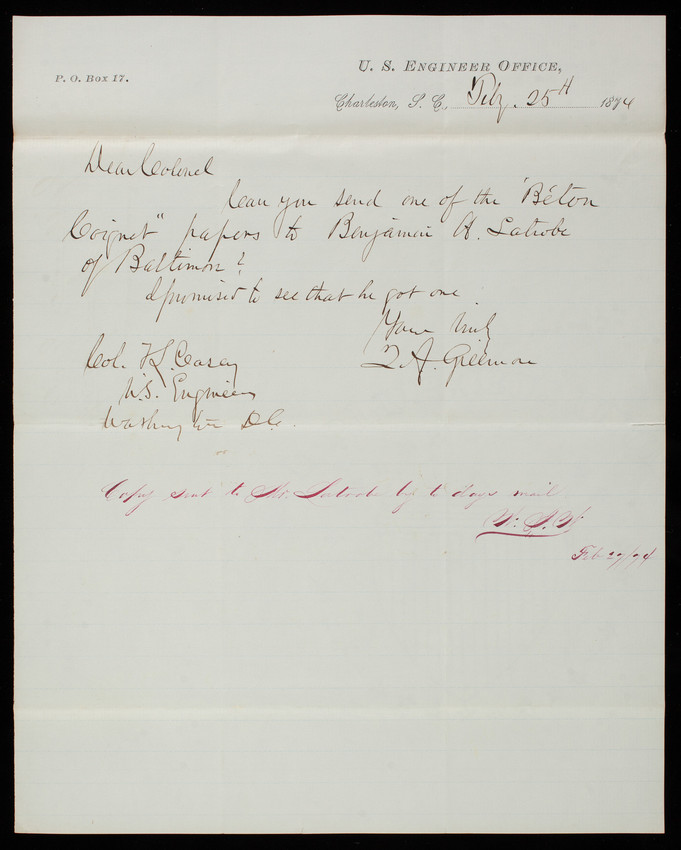 U. S. Engineer Office,
P. O. Box 17.
Charleston, S. C., Feby. 25th 1874
Dear Colonel
Can you send one of the "Béton
Coignet" papers to Benjamin H. Latrobe
of Baltimore?
I promised to see that he got one.
Yours truly
Q A. Gillmore
Col. T L. Casey
U.S. Engineers
Washington D.C.
Copy sent to Mr. Latrobe by to days mail
Feb 27/74